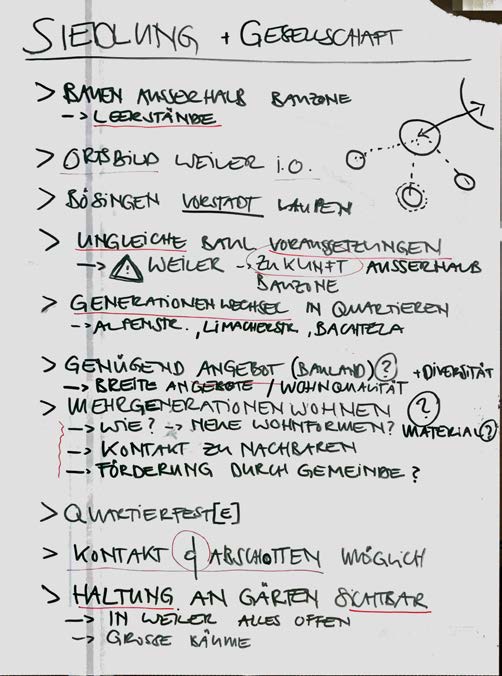 SIEDLUNG + GESELLSCHAFT
> BAUEN AUSSERHALB BAUZONE
--> LEERSTÄNDE
> ORTSBILD WEILER i.O.
> BÖSINGEN VORSTADT LAUPEN
> UNGLEICHE BAUL VORAUSSETZUNGEN
--> ! WEILER --> ZUKUNFT AUSSERHALB
BAUZONE
> GENERATIONENWECHSEL IN QUARTIEREN
--> ALPENSTR., LIMACHERSTR, BACHTELA
> GENÜGEND ANGEBOT (BAULAND) ? + DIVERSITÄT
--> BREITE ANGEBOTE / WOHNQUALITÄT
> MEHRGENERATIONENWOHNEN ?
--> WIE? --> NEUE WOHNFORMEN? MATERIAL ?
--> KONTAKT ZU NACHBAREN
--> FÖRDERUNG DURCH GEMEINDE?
> QUARTIERFEST[E]
> KONTAKT ABSCHOTTEN MÖGLICH
> HALTUNG AN GÄRTEN SICHTBAR
--> IN WEILER ALLES OFFEN
--> GROSSE BÄUME